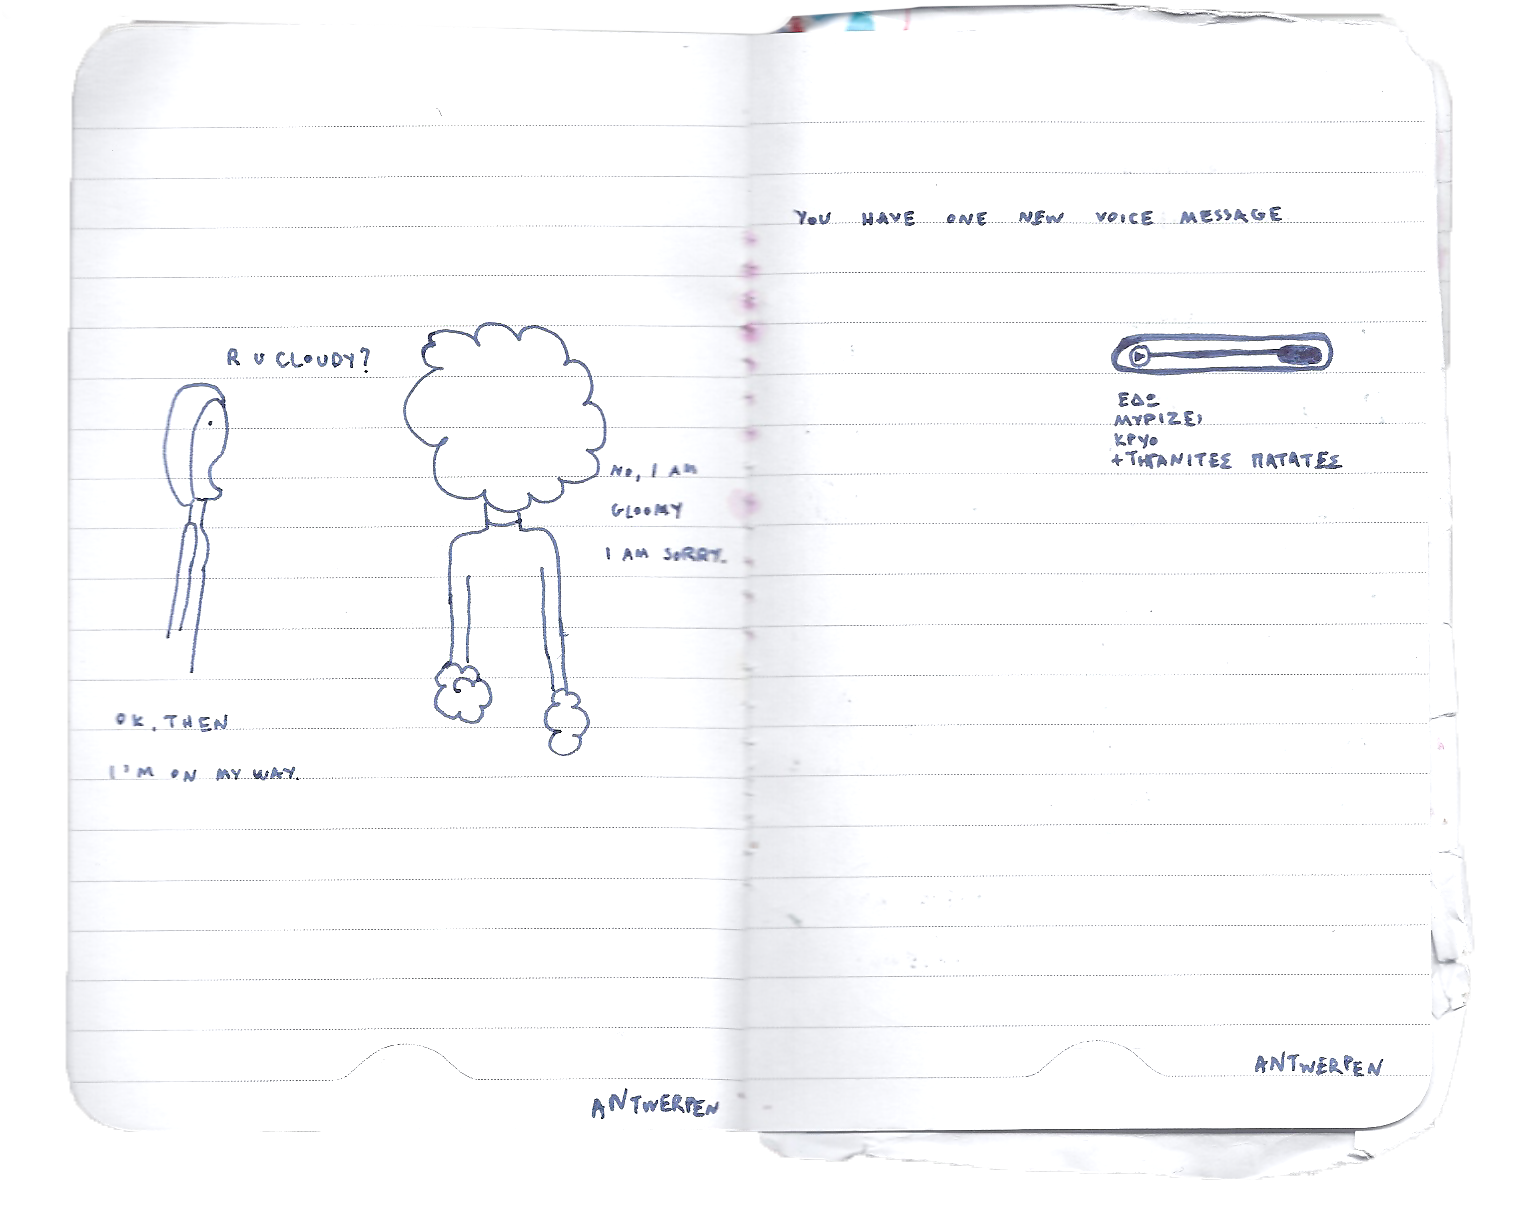 R U CLOUDY?
NO, I AM
GLOOMY
I AM SORRY.
OK, THEN
I'M ON MY WAY.
ANTWERPEN
YOU HAVE ONE NEW VOICE MESSAGE
ΕΔΩ
ΜΥΡΙΖΕΙ
ΚΡΥΟ
+ΤΗΓΑΝΙΤΕΣ ΠΑΤΑΤΕΣ
ANTWERPEN